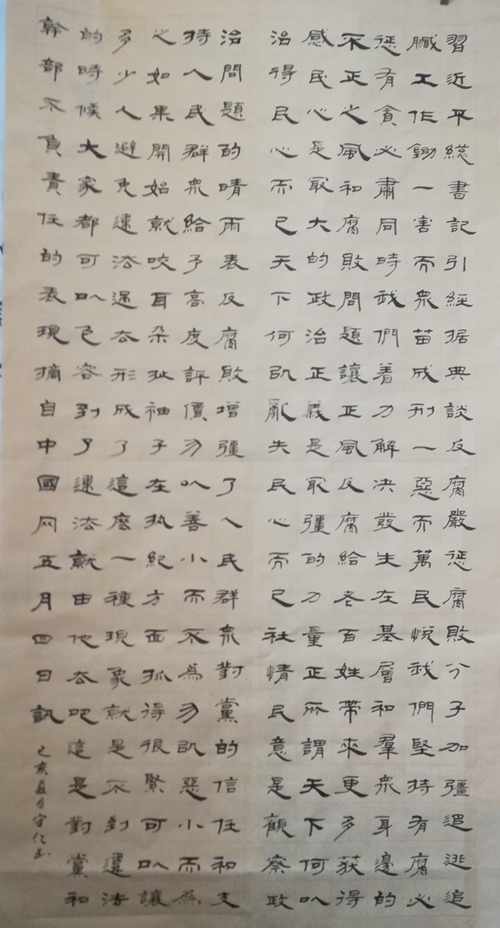 習近平總書記引經据典談反腐嚴惩腐敗分子加彊追逃追
臟工作鋤一害而衆苗成刑一惡而萬民悦我們堅持有腐必
惩有貪必肅同時我們着力解决發生在基層和羣衆身邊的
不正之風和腐敗問題讓正風反腐給老百姓带來更多获得
感民心是最大的政治正義是最彊的力量正所謂天下何以
治得民心而已天下何以亂失民心而已社情民意是觀察政
治問題的晴雨表反腐敗增彊了人民群衆對黨的信任和支
持人民群衆給予高度評價勿以善小而不為勿以惡小而為
之如果開始就咬耳朵扯袖子在执紀方面抓得很緊可以讓
多少人避免違法過去形成了這麽一種現象就是不到違法
的時候大家都可以包容到了違法就由他去吧這是對黨和
幹部不負責任的表現摘自中國网五月四日訊
己亥夏月守仁書